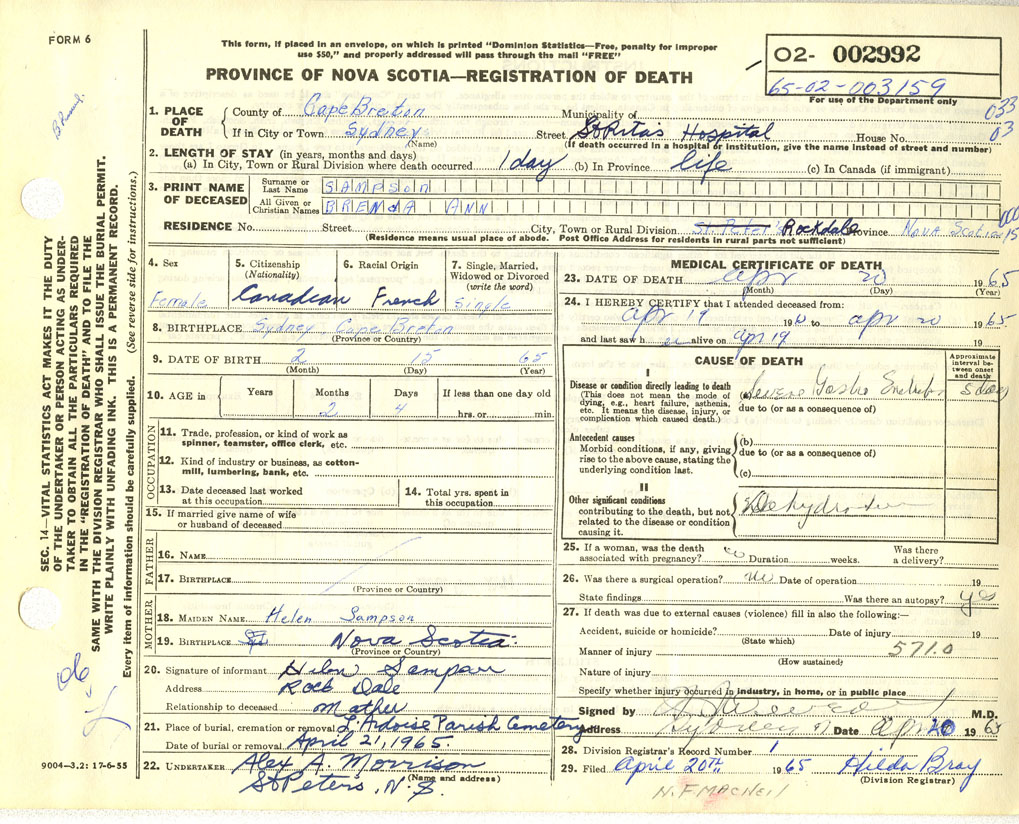 FORM 6
This form, if placed in an envelope, on which is printed "Dominion Statistics—Free, penalty for improper
use $50," and properly addressed will pass through the mail "FREE"
PROVINCE OF NOVA SCOTIA—REGISTRATION OF DEATH
02- 002992
65-02-003159
For use of the Department only
033
03
1. PLACE OF DEATH
County of Cape Breton Municipality of
If in City or Town Sydney Street St Rita's Hospital House No.
(Name) (If death occurred in a hospital or institution, give the name instead of street and number)
2. LENGTH OF STAY (in years, months and days)
(a) In City, Town or Rural Division where death occurred 1 day (b) In Province life (c) In Canada (if immigrant)
3. PRINT NAME OF DECEASED
Surname or Last Name SAMPSON
All Given or Christian Names BRENDA ANN
000
15
RESIDENCE No. Street City, Town or Rural Division St. Peter's Rockdale Province Nova Scotia
(Residence means usual place of abode. Post Office Address for residents in rural parts not sufficient)
4. Sex
Female
5. Citizenship
(Nationality)
Canadian
6. Racial Origin
French
7. Single, Married,
Widowed or Divorced
(write the word)
Single
8. BIRTHPLACE Sydney, Cape Breton
(Province or Country)
9. DATE OF BIRTH 2 15 65
(Month) (Day) (Year)
10. AGE in Years Months Days If less than one day old
2 4 hrs. or min.
OCCUPATION
11. Trade, profession, or kind of work as
spinner, teamster, office clerk, etc.
12. Kind of industry or business, as cotton-
mill, lumbering, bank, etc.
13. Date deceased last worked
at this occupation
14. Total yrs. spent in
this occupation
15. If married give name of wife
or husband of deceased
FATHER
16. NAME
17. BIRTHPLACE
(Province or Country)
MOTHER
18. MAIDEN NAME Helen Sampson
19. BIRTHPLACE Nova Scotia
(Province or Country)
20. Signature of informant Helen Sampson
Address Rock Dale
Relationship to deceased Mother
21. Place of burial, cremation or removal L'Ardoise Parish Cemetery
Date of burial or removal April 21, 1965.
22. UNDERTAKER Alex A. Morrison
(Name and address)
St Peters, N.S.
9004-3.2: 17-6-55
MEDICAL CERTIFICATE OF DEATH
23. DATE OF DEATH Apr 20 1965
(Month) (Day) (Year)
24. I HEREBY CERTIFY that I attended deceased from:
Apr 19 19 to Apr 20 1965
and last saw her alive on Apr 19 19
CAUSE OF DEATH
Approximate
interval be-
tween onset
and death
I
Disease or condition directly leading to death
(This does not mean the mode of
dying, e.g., heart failure, asthenia,
etc. It means the disease, injury, or
complication which caused death.)
(a) Severe Gastro 5 days
due to (or as a consequence of)
Antecedent causes
Morbid conditions, if any, giving
rise to the above cause, stating the
underlying condition last.
(b)
due to (or as a consequence of)
(c)
II
Other significant conditions
contributing to the death, but not
related to the disease or condition
causing it.
Dehydration
25. If a woman, was the death
associated with pregnancy? Duration weeks. Was there
a delivery?
26. Was there a surgical operation? no Date of operation 19
State findings Was there an autopsy? yes
27. If death was due to external causes (violence) fill in also the following:—
Accident, suicide or homicide? Date of injury 19
(State which)
Manner of injury 571.0
(How sustained)
Nature of injury
Specify whether injury occurred in industry, in home, or in public place
Signed by M.D.
Address Sydney Date Apr 20 1965
28. Division Registrar's Record Number 1
29. Filed April 20th 1965 Hilda Bray
(Division Registrar)
H.F. MACNEIL
SEC. 14—VITAL STATISTICS ACT MAKES IT THE DUTY
OF THE UNDERTAKER OR PERSON ACTING AS UNDER-
TAKER TO OBTAIN ALL THE PARTICULARS REQUIRED
IN THE "REGISTRATION OF DEATH" AND TO FILE THE
SAME WITH THE DIVISION REGISTRAR WHO SHALL ISSUE THE BURIAL PERMIT.
WRITE PLAINLY WITH UNFADING INK. THIS IS A PERMANENT RECORD.
Every item of information should be carefully supplied. (See reverse side for instructions.)